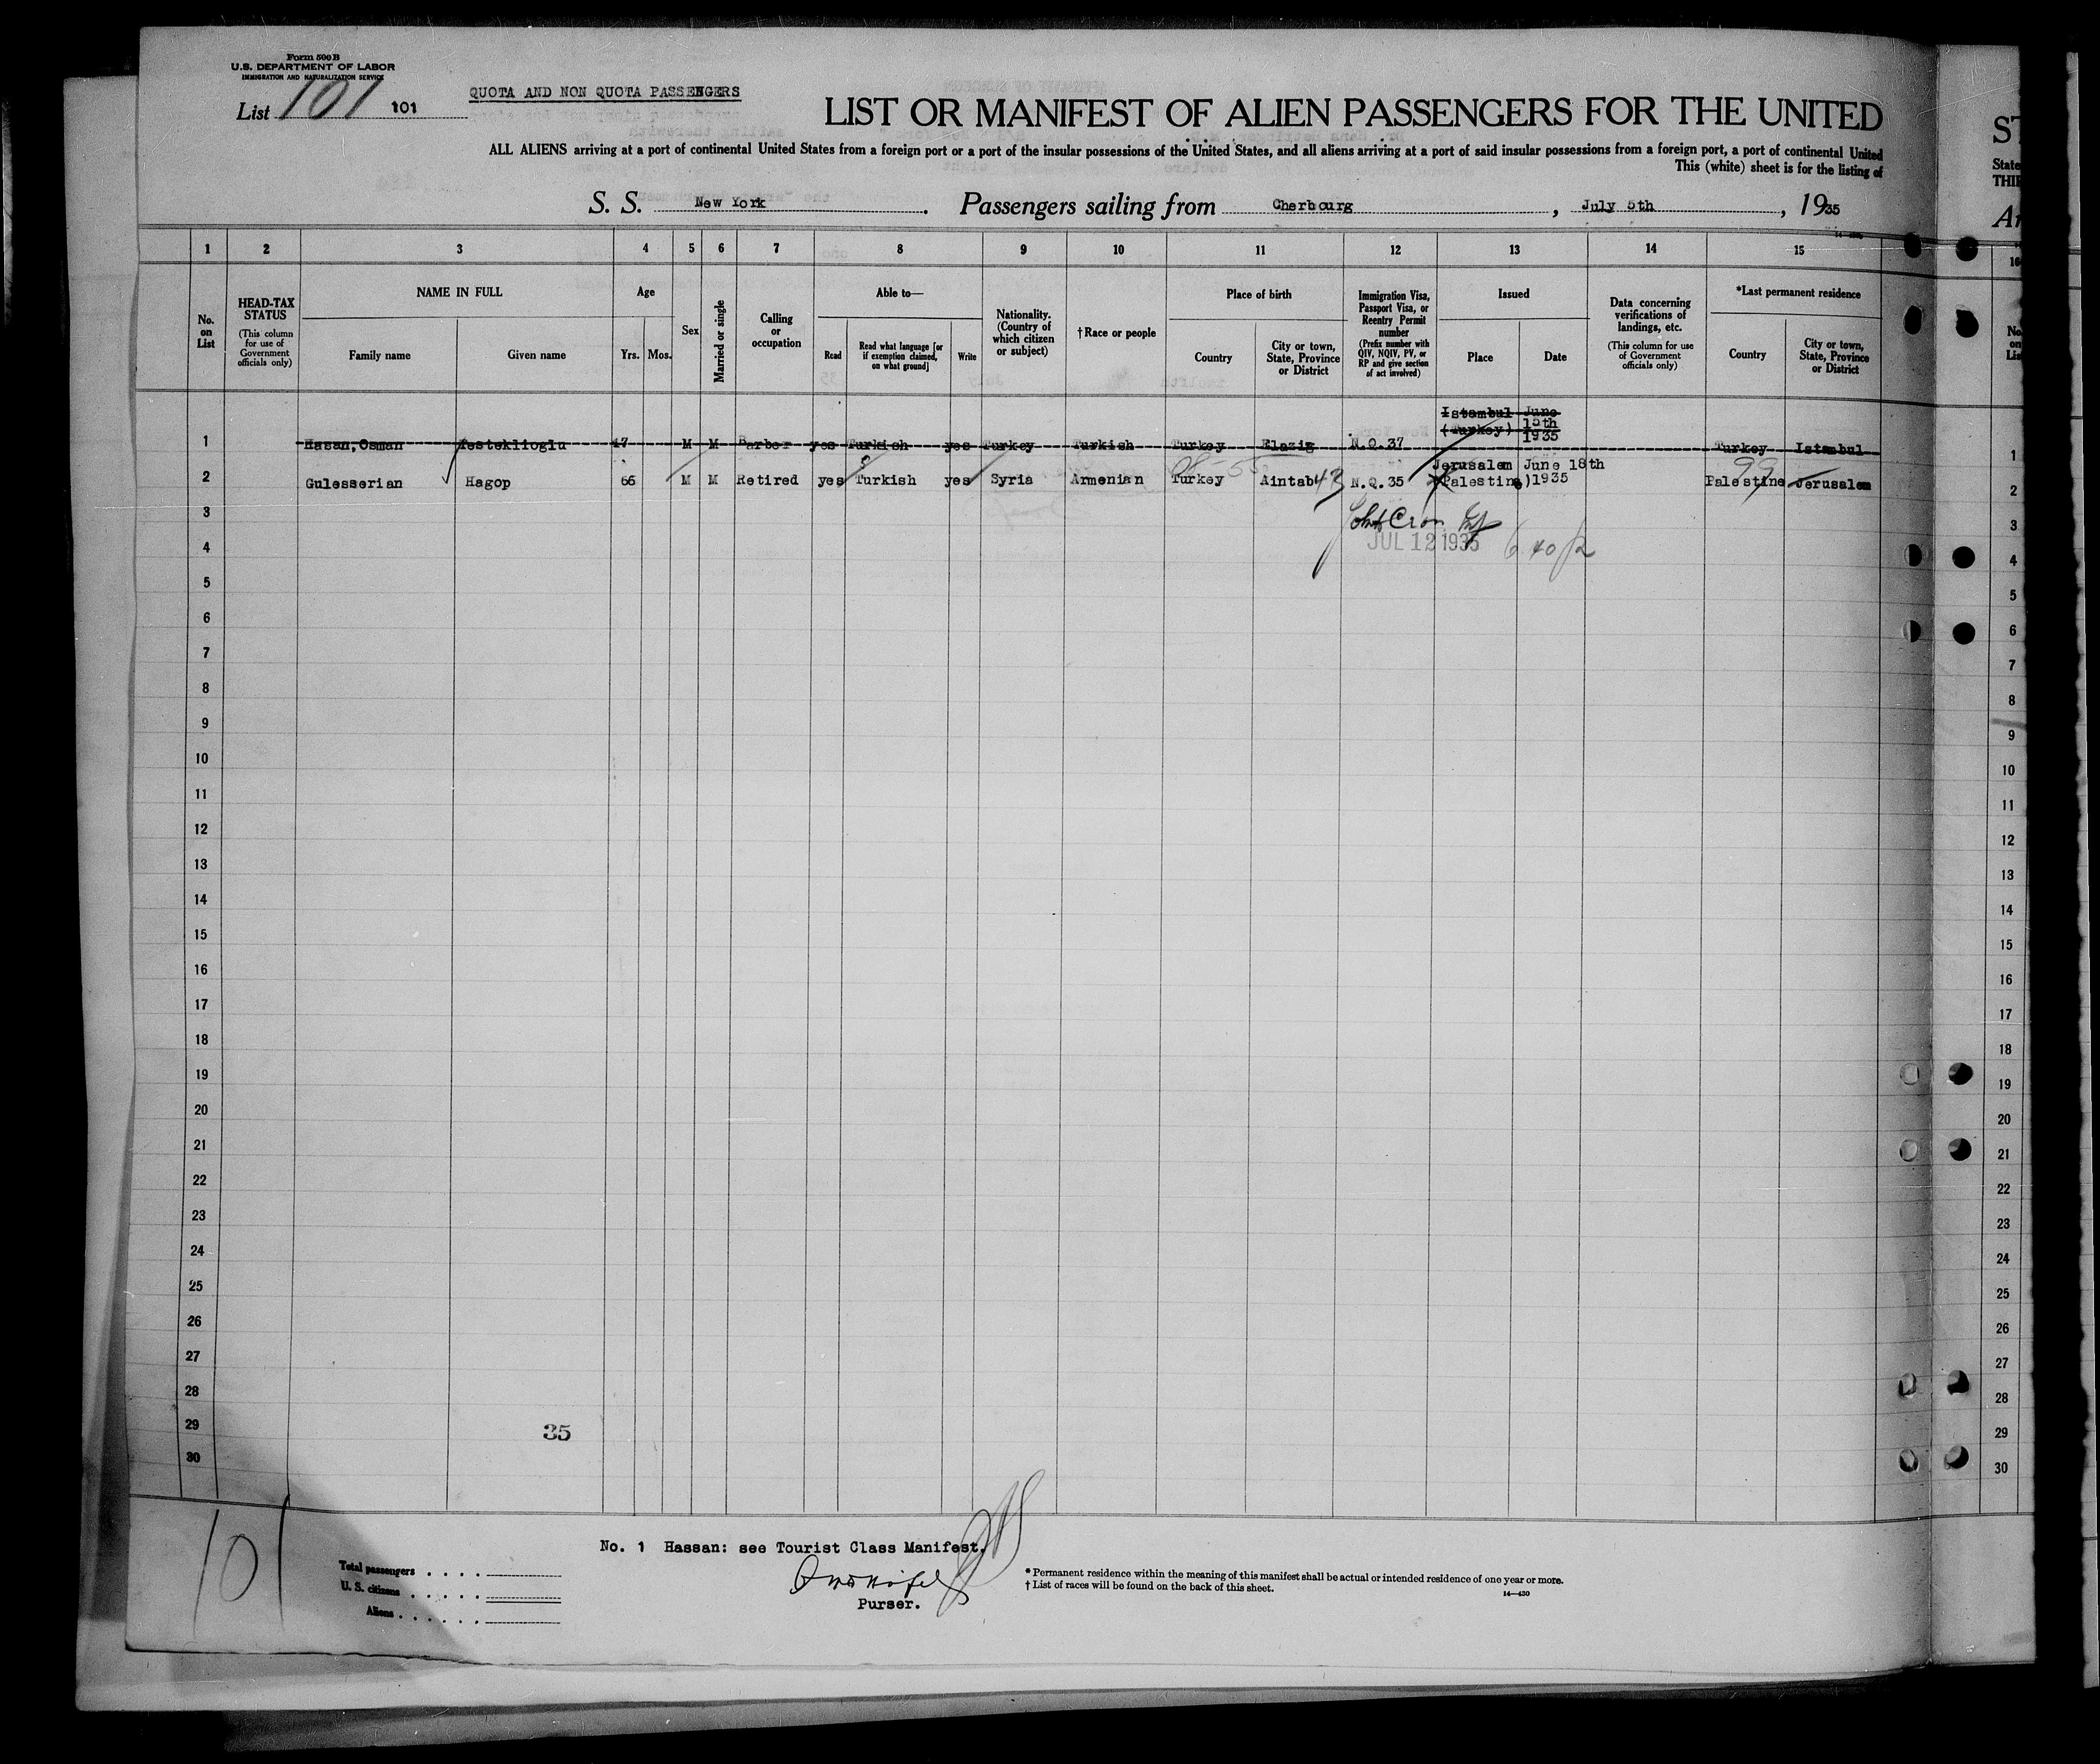 Form 500 B
U.S. DEPARTMENT OF LABOR
IMMIGRATION AND NATURALIZATION SERVICE
List 101 101
QUOTA AND NON QUOTA PASSENGERS
LIST OR MANIFEST OF ALIEN PASSENGERS FOR THE UNITED
ALL ALIENS arriving at a port of continental United States from a foreign port or a port of the insular possessions of the United States, and all aliens arriving at a port of said insular possessions from a foreign port, a port of continental United
This (white) sheet is for the listing of
S. S. New York. Passengers sailing from Cherbourg, July 5th, 1935
ST
State
THI
1 2 3 4 5 6 7 8 9 10 11 12 13 14 15
16
No. on List
HEAD-TAX STATUS (This column for use of Government officials only)
NAME IN FULL
Family name Given name
Age
Yrs. Mos.
Sex
Married or single
Calling or occupation
Able to—
Read
Read what language [or if exemption claimed, on what ground]
Write
Nationality. (Country of which citizen or subject)
†Race or people
Place of birth
Country
City or town, State, Province or District
Immigration Visa, Passport Visa, or Reentry Permit number (Prefix number with QIV, NQIV, PV, or RP and give section of act involved)
Issued
Place Date
Data concerning verifications of landings, etc. (This column for use of Government officials only)
*Last permanent residence
Country
City or town, State, Province or District
1 Hasan,Osman Yesteklioglu 47 M M Barber yes Turkish yes Turkey Turkish Turkey Elazig N.Q.37 Istambul (Turkey) June 15th 1935 Turkey Istambul
2 Gulesserian Hagop 66 M M Retired yes Turkish yes Syria Armenian Turkey Aintab N.Q.35 Jerusalem (Palestine) June 18th 1935 Palestine Jerusalem
99
43
3
JUL 12 1935
4
5
6
7
8
9
10
11
12
13
14
15
16
17
18
19
20
21
22
23
24
25
26
27
28
29
30
35
1
2
3
4
5
6
7
8
9
10
11
12
13
14
15
16
17
18
19
20
21
22
23
24
25
26
27
28
29
30
101
No. 1 Hassan: see Tourist Class Manifest.
Purser.
Total passengers
U. S. citizens
Aliens
* Permanent residence within the meaning of this manifest shall be actual or intended residence of one year or more.
† List of races will be found on the back of this sheet.
14—430